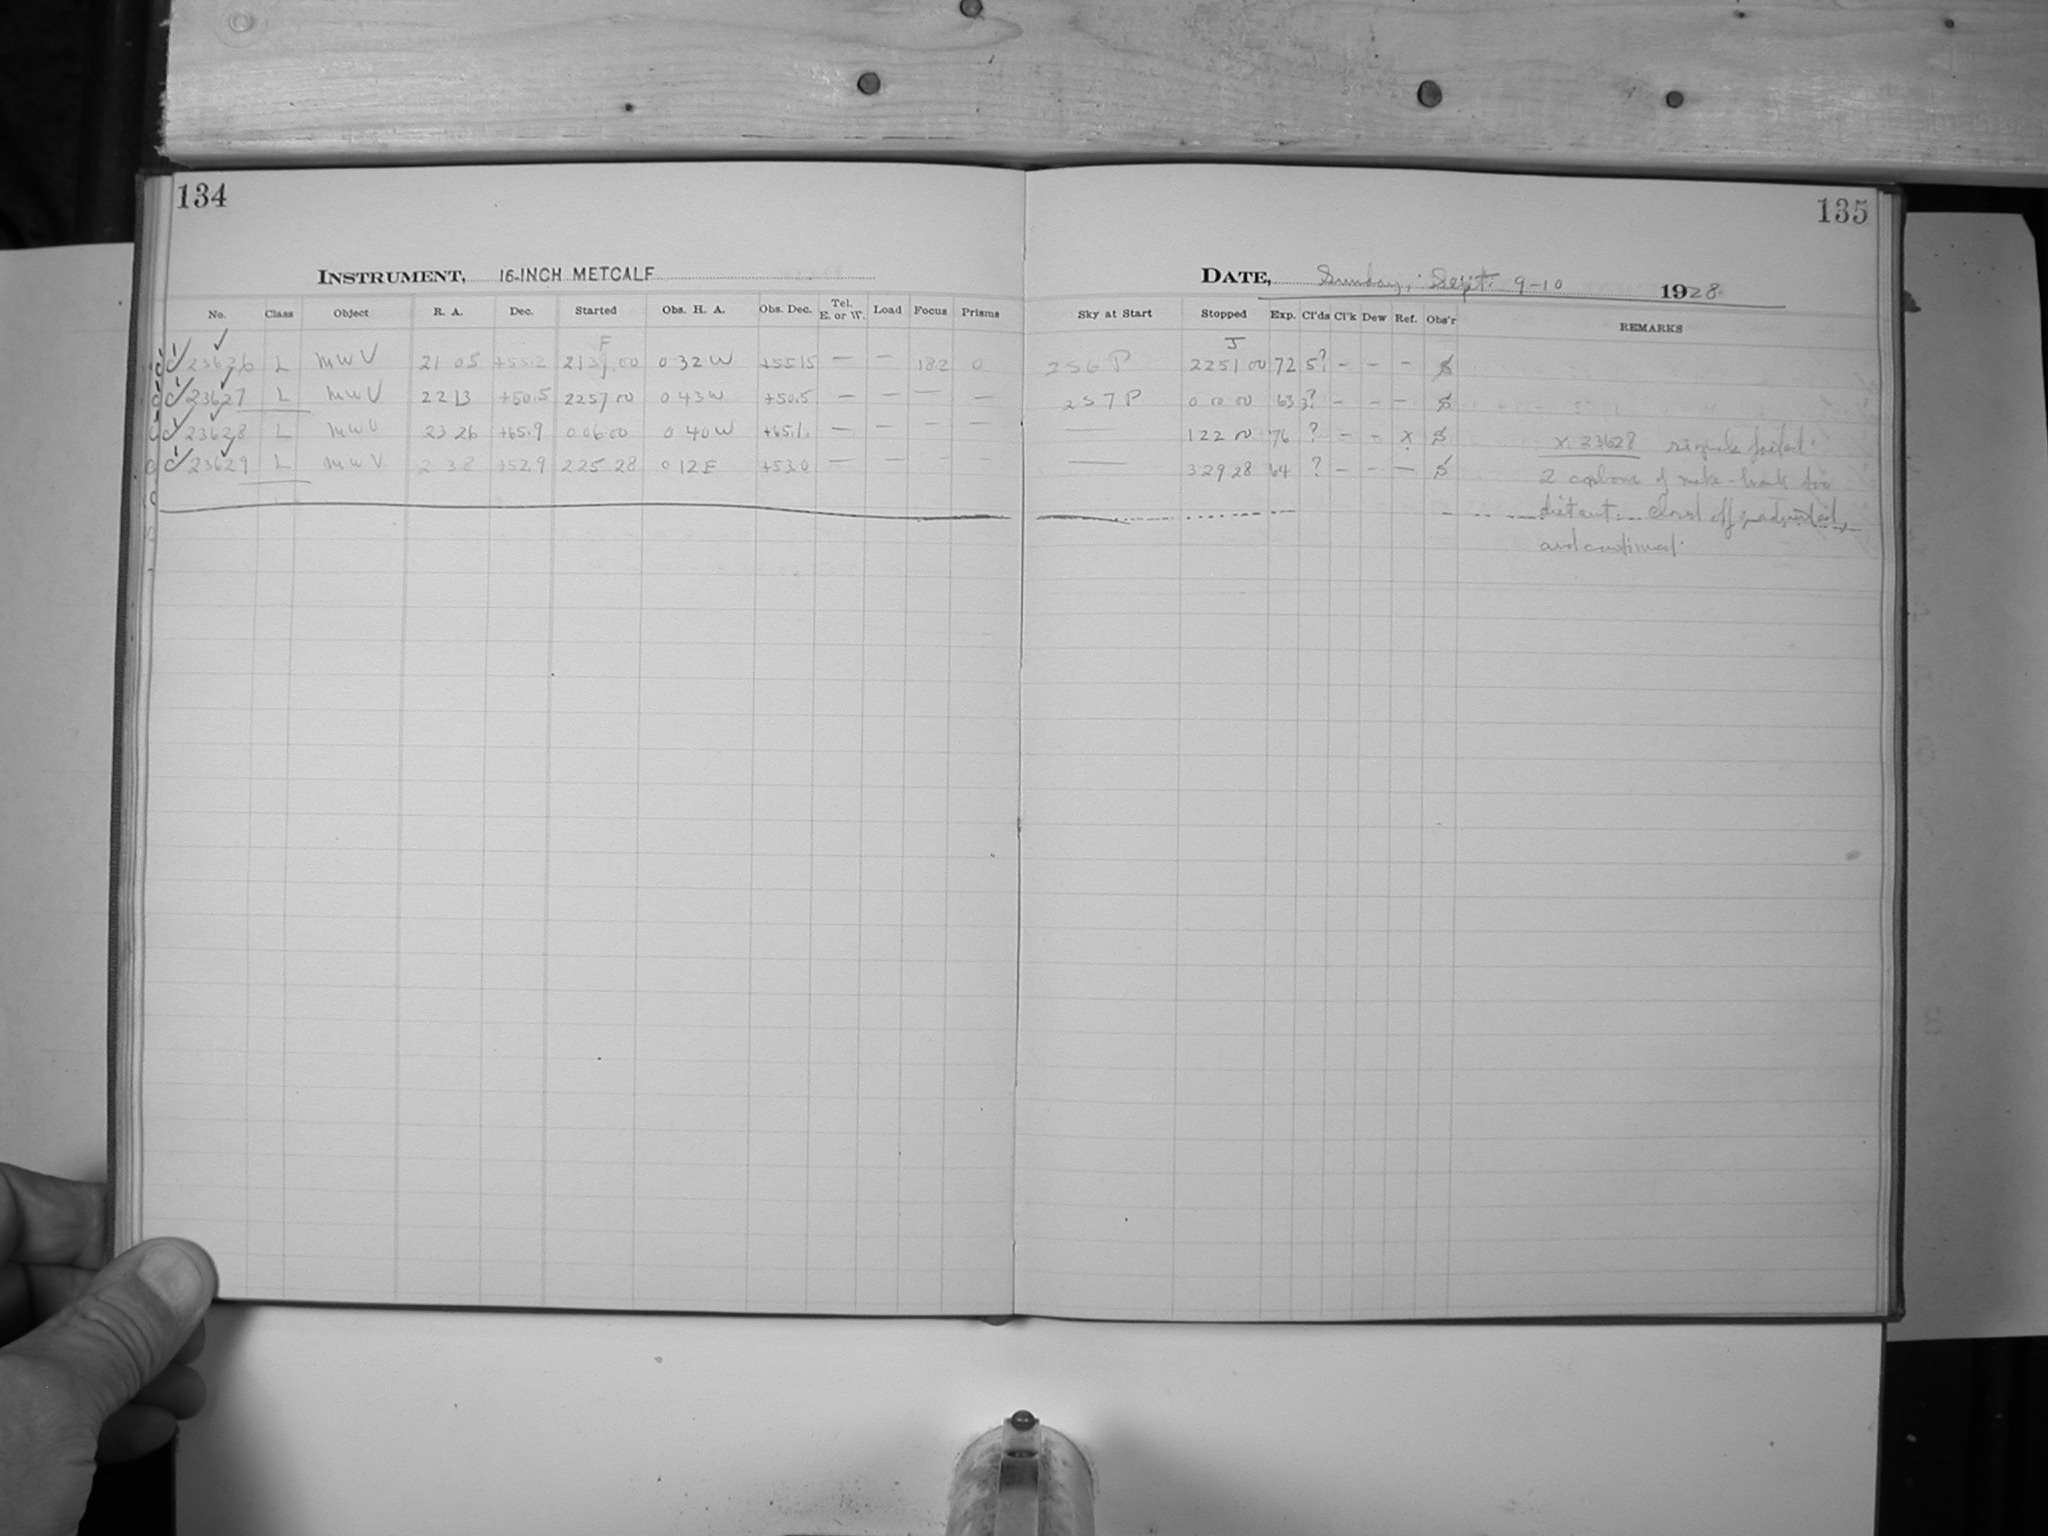 134
135
INSTRUMENT, 16-INCH METCALF
DATE, Sunday, Sept. 9-10 1928.
No. Class Object R. A. Dec. Started Obs. H. A. Obs. Dec. Tel. E. or W. Load Focus Prisms Sky at Start Stopped Exp. Cl'ds Cl'k Dew Ref. Obs'r REMARKS
F J
23626 L MWV 21 05 +55.2 2139 00 0 32 W +5515 — — 182 0 2S6P 2251 00 72 5? – – –
23627 L MWV 22 13 +50.5 2257 00 0 43 W +50.5 — — — — 2S7P 0 00 00 63 3? – – –
23628 L MWV 23 26 +65.9 0 06 00 0 40 W +65.1 — — — — — 122 00 76 ? – – x x 23628 signals failed.
23629 L MWV 2 38 +52.9 225 28 0 12 E +53.0 — — — — — 329 28 64 ? – – — 2 of make-break too
distant. Closed off; adjusted,
and continued.